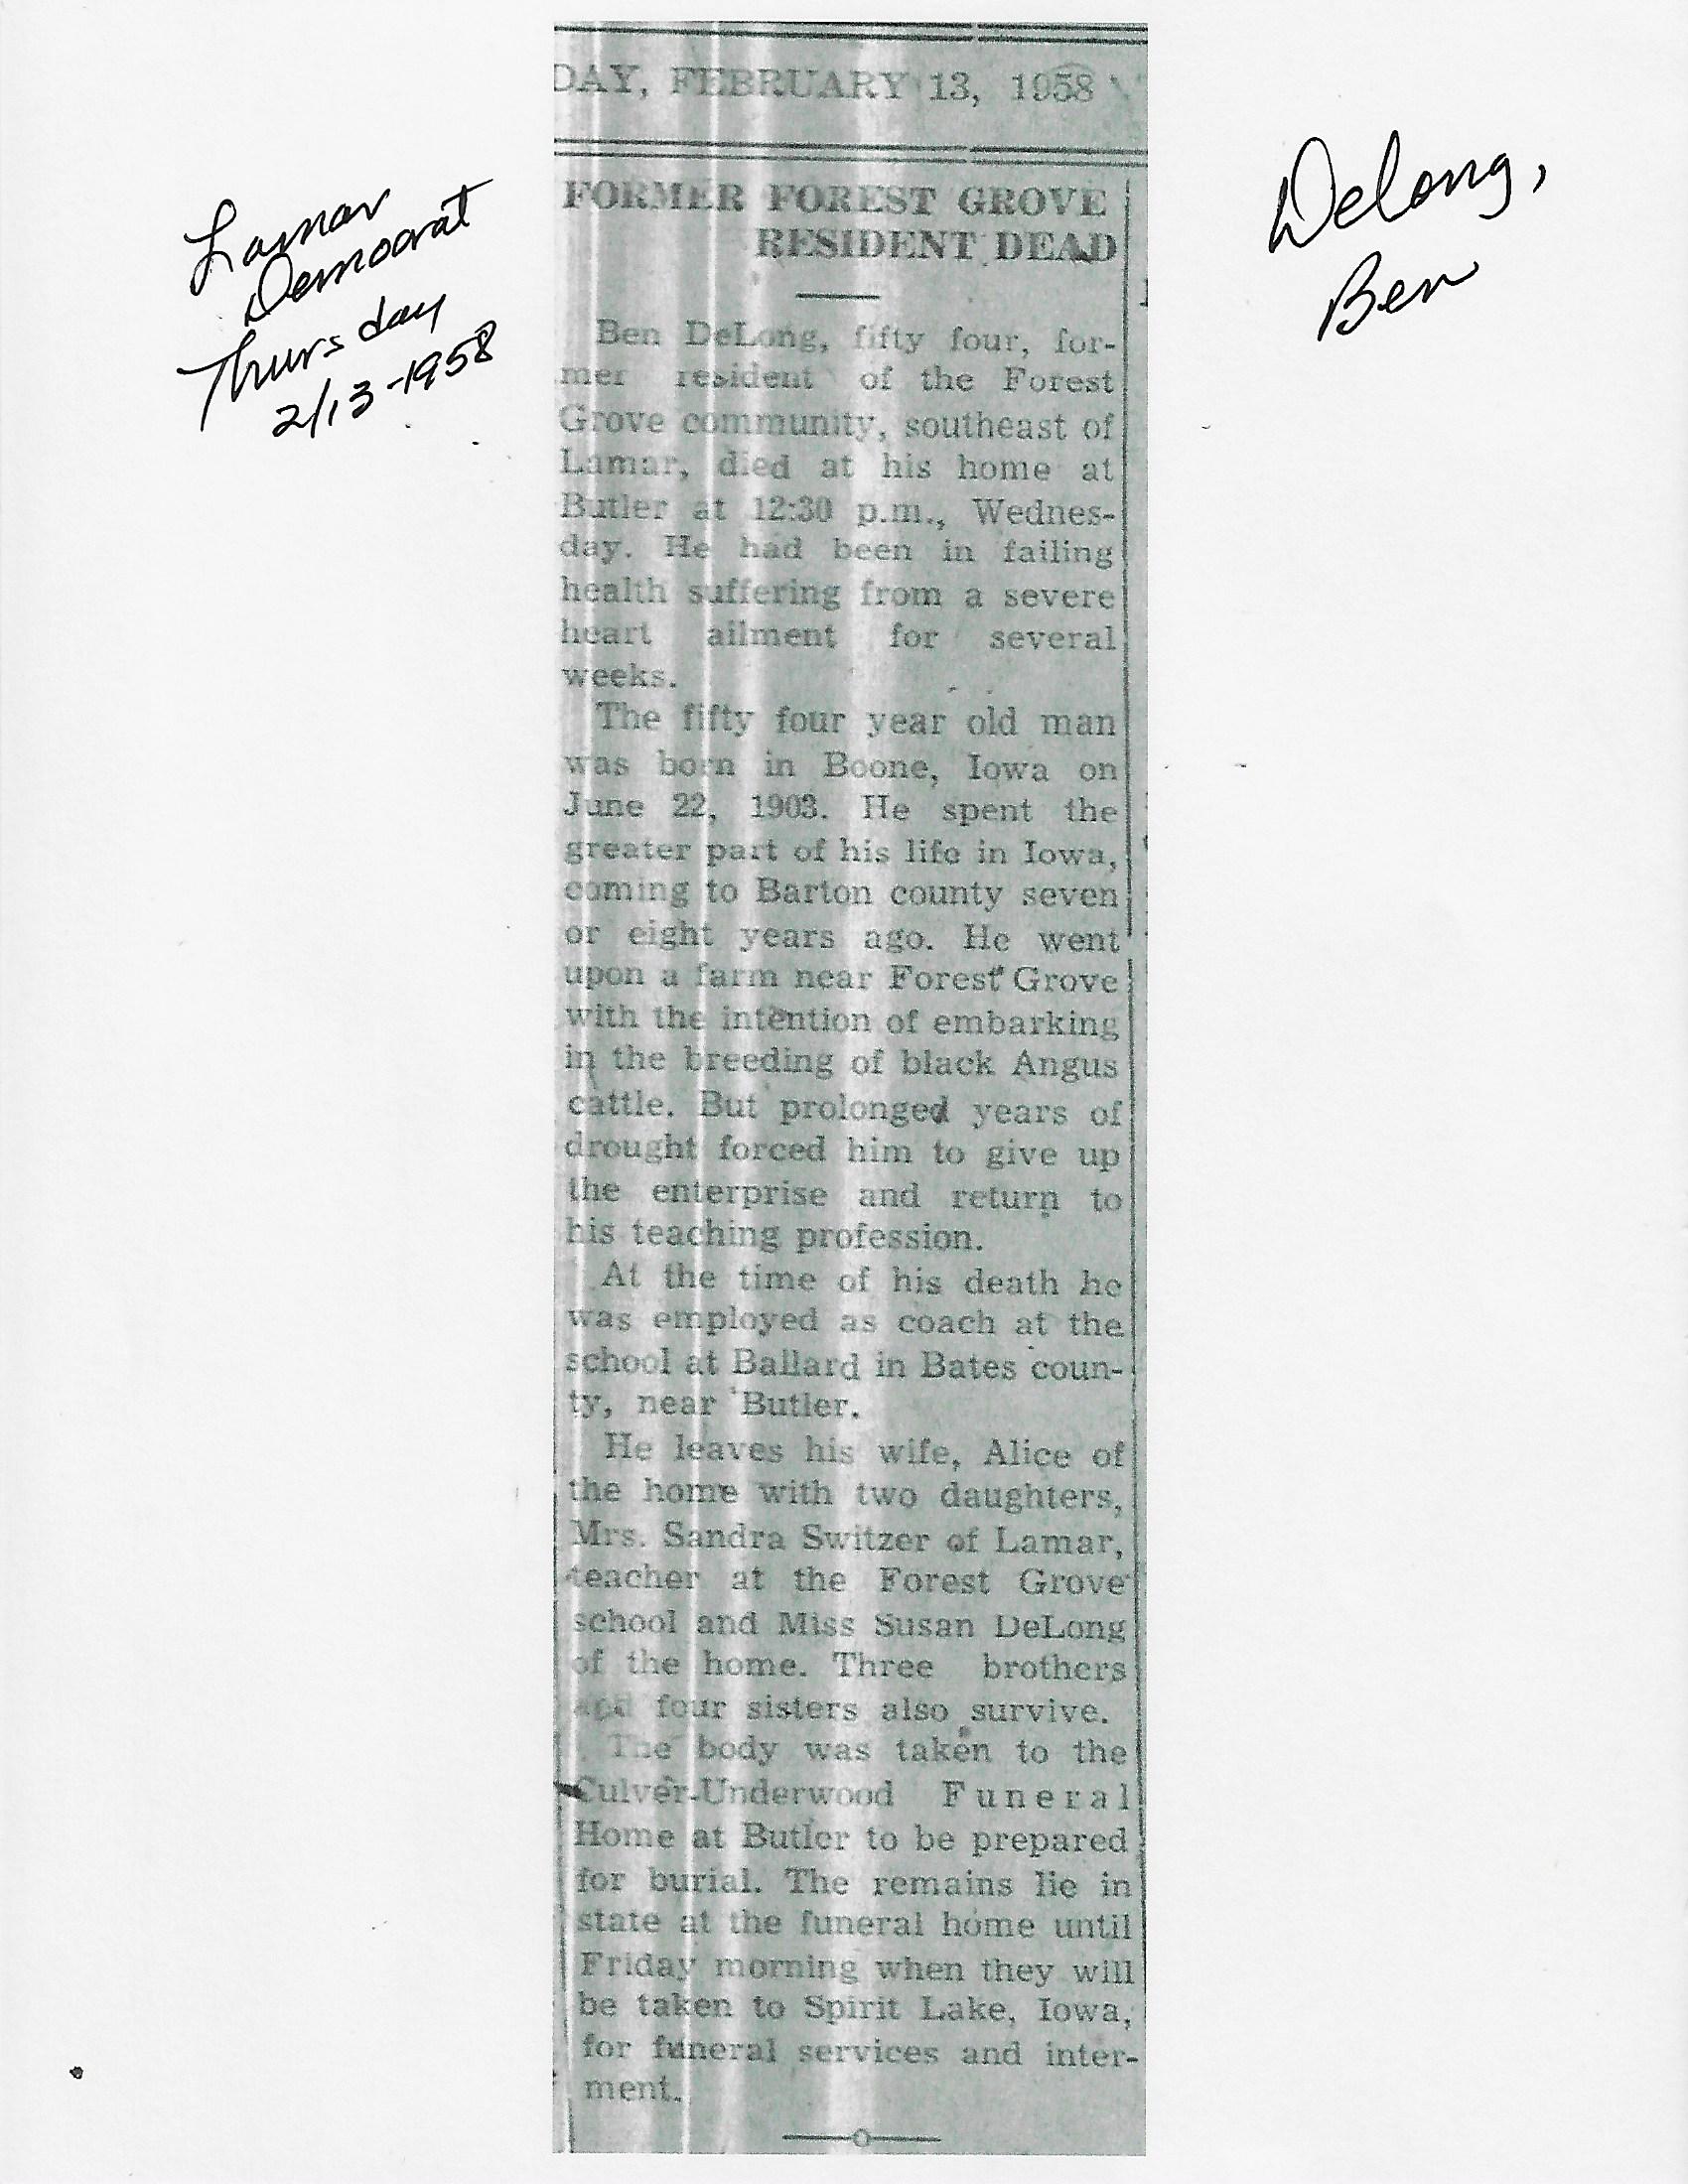 DAY, FEBRUARY 13, 1958
Lamar
Democrat
Thursday
2/13-1958
DeLong,
Ben
FORMER FOREST GROVE
RESIDENT DEAD
Ben DeLong, fifty four, for-
mer resident of the Forest
Grove community, southeast of
Lamar, died at his home at
Butler at 12:30 p.m., Wednes-
day. He had been in failing
health suffering from a severe
heart ailment for several
weeks.
The fifty four year old man
was born in Boone, Iowa on
June 22, 1903. He spent the
greater part of his life in Iowa,
coming to Barton county seven
or eight years ago. He went
upon a farm near Forest Grove
with the intention of embarking
in the breeding of black Angus
cattle. But prolonged years of
drought forced him to give up
the enterprise and return to
his teaching profession.
At the time of his death he
was employed as coach at the
school at Ballard in Bates coun-
ty, near Butler.
He leaves his wife, Alice of
the home with two daughters,
Mrs. Sandra Switzer of Lamar,
teacher at the Forest Grove
school and Miss Susan DeLong
of the home. Three brothers
and four sisters also survive.
The body was taken to the
Culver-Underwood Funeral
Home at Butler to be prepared
for burial. The remains lie in
state at the funeral home until
Friday morning when they will
be taken to Spirit Lake, Iowa,
for funeral services and inter-
ment.